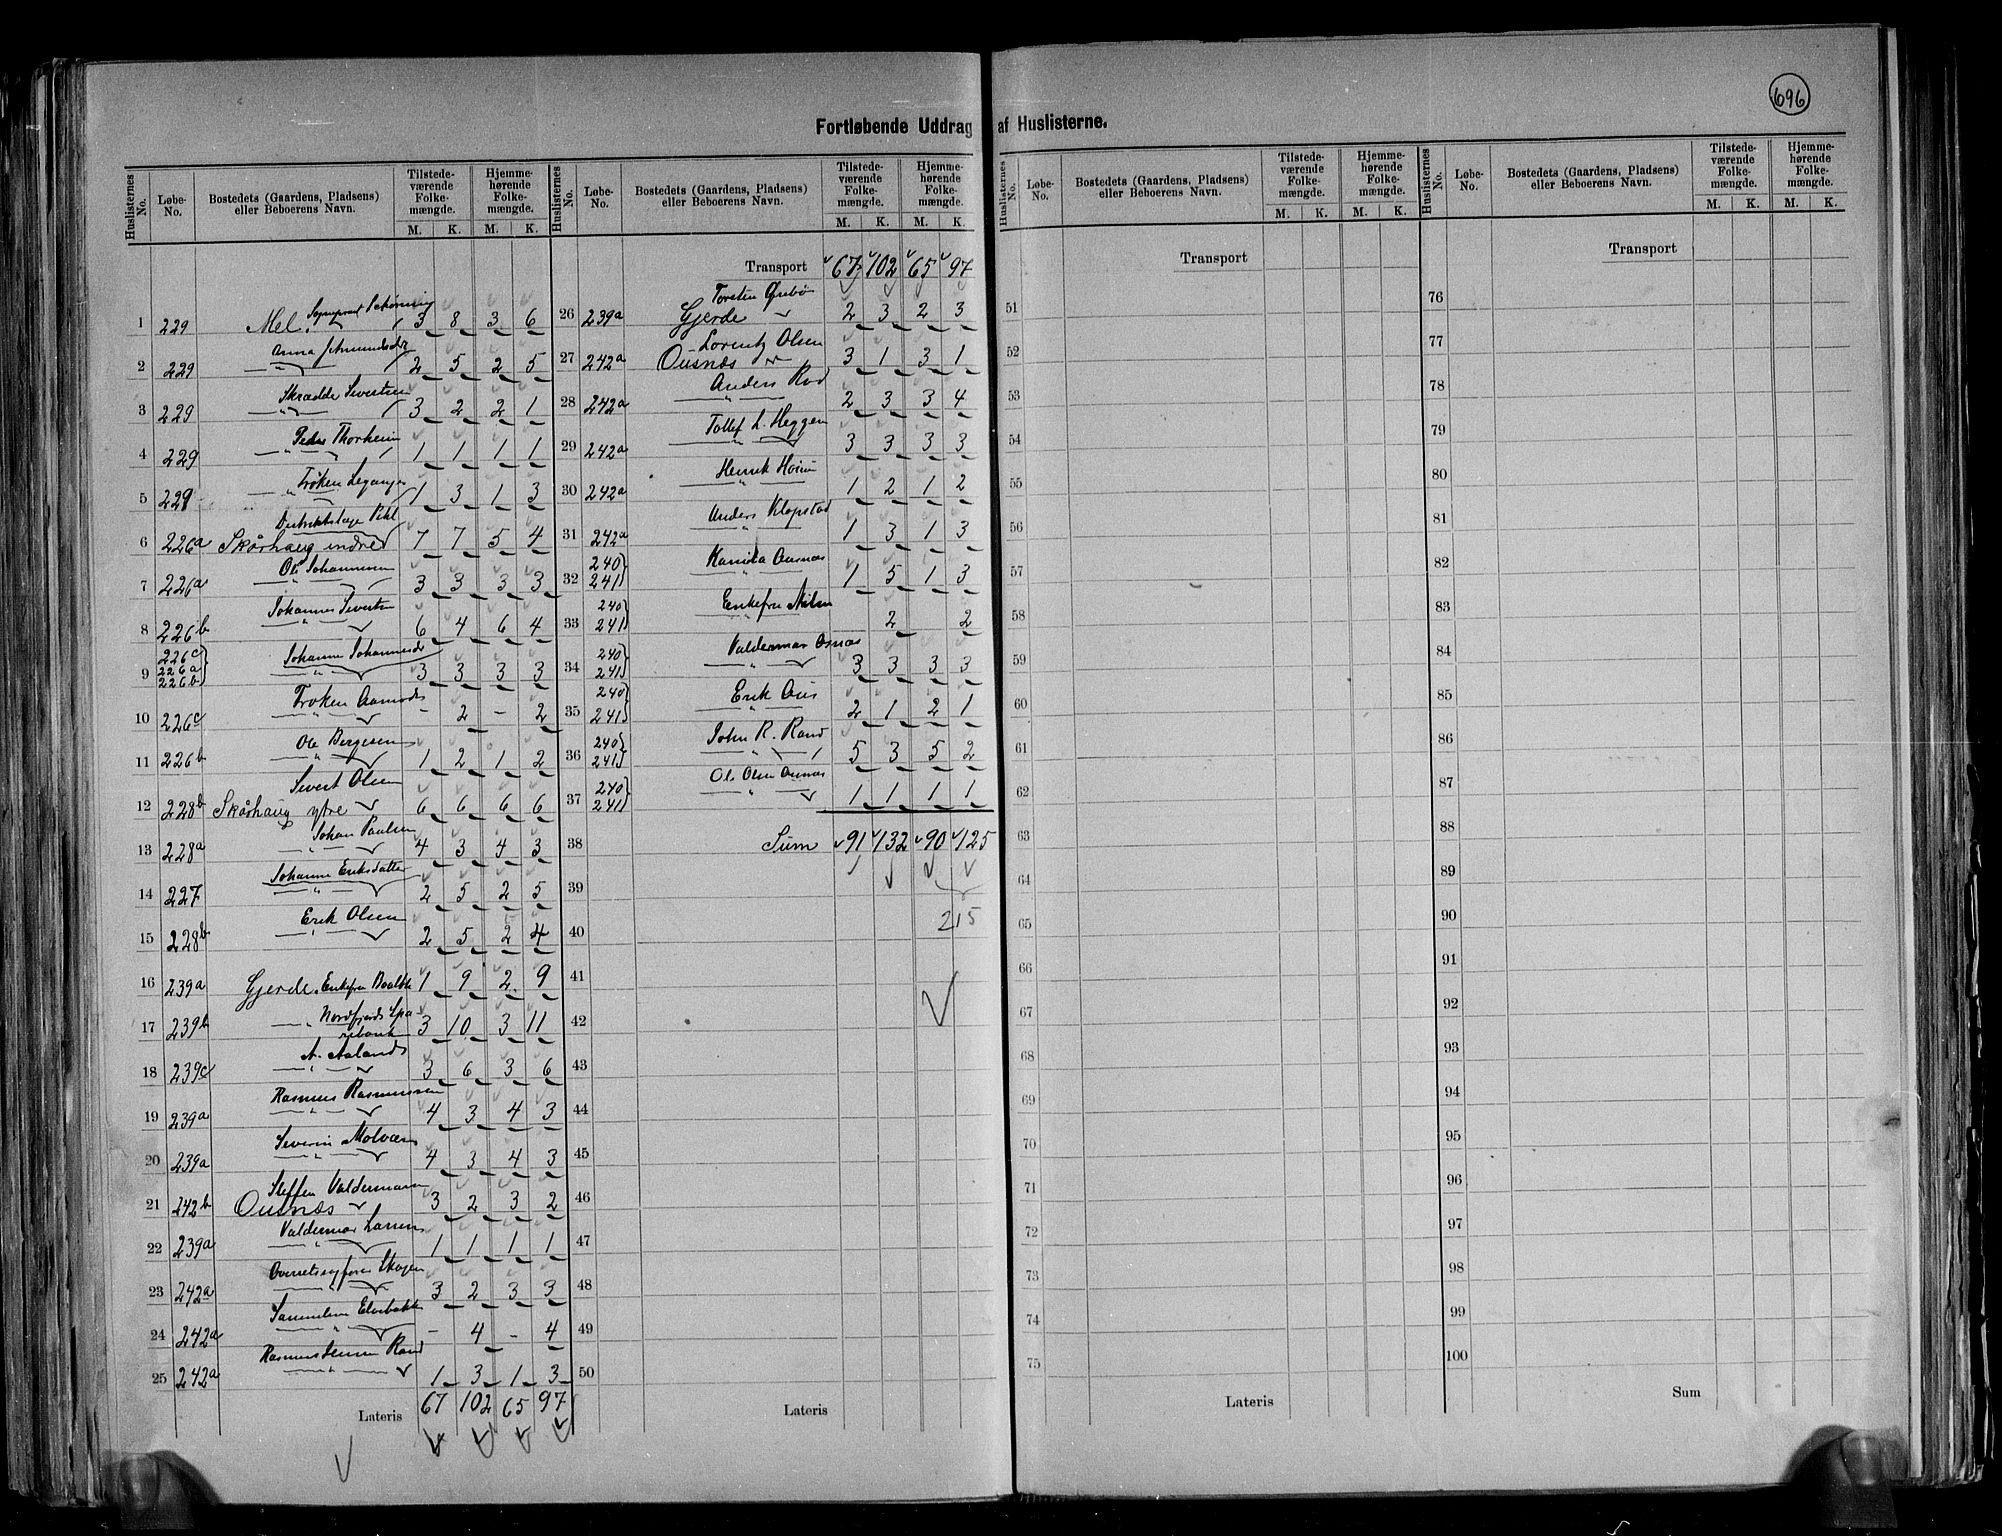 696
Fortløbende Uddrag af Huslisterne.
Huslisternes No. Løbe-No. Bostedets (Gaardens, Pladsens) eller Beboerens Navn. Tilstedeværende Folkemængde. M. K. Hjemmehørende Folkemængde. M. K.
1 229 Mel, Sogneprest Schøning 3 8 3 6
2 229 Anna Amundsdtr 2 5 2 5
3 229 Skrædde Sivertsen 3 2 2 1
4 229 Peder Thorheim 1 1 1 1
5 229 Frøken Leganger 1 3 1 3
6 226a Distriktslæge Pihl Skårhaug indre 7 7 5 4
7 226a Ole Johannesen 3 3 3 3
8 226b Johannes Sivertsen 6 4 6 4
9 226c 226a 226b Johanne Johannesdr 3 3 3 3
10 226c Frøken Aamodt - 2 - 2
11 226b Ole Bergesen 1 2 1 2
12 228b Sivert Olsen Skårhaug ytre 6 6 6 6
13 228a Johan Paulsen 4 3 4 3
14 227 Johanne Eriksdatter 2 5 2 5
15 228b Erik Olsen 2 5 2 4
16 239a Gjerde, Enkefru 1 9 2 9
17 239b " Nordfjords Sparebank 3 10 3 11
18 239c A. Aaland 3 6 3 6
19 239a Rasmus Rasmussen 4 3 4 3
20 239a Severin Molvær 4 3 4 3
21 242b Steffen Valdermarsen Ousnæs 3 2 3 2
22 239a Valdermar Larsen 1 1 1 1
23 242a Overretssagfører Skogen 3 2 3 3
24 242a - 4 - 4
25 242a Rasmus Jensen Rand 1 3 1 3
Lateris 67 102 65 97
Huslisternes No. Løbe-No. Bostedets (Gaardens, Pladsens) eller Beboerens Navn. Tilstedeværende Folkemængde. M. K. Hjemmehørende Folkemængde. M. K.
Transport 67 102 65 97
26 239a Torsten Ørebø Gjerde 2 3 2 3
27 242a Lorentz Olsen Ousnæs 3 1 3 1
28 242a Anders Rød 2 3 3 4
29 242a Tollef L. Heggen 3 3 3 3
30 242a Henrik 1 2 1 2
31 242a Anders Klopstad 1 3 1 3
32 240 241 1 5 1 3
33 240 241 Enkefru 2 2
34 240 241 Valdermar Osnæs 3 3 3 3
35 240 241 Erik Aus 2 1 2 1
36 240 241 John R. Rand 5 3 5 2
37 240 241 Ole Olsen Ousnæs 1 1 1 1
38 Sum 91 132 90 125
39
215
40
41
42
43
44
45
46
47
48
49
50
Lateris
Huslisternes No. Løbe-No. Bostedets (Gaardens, Pladsens) eller Beboerens Navn. Tilstedeværende Folkemængde. M. K. Hjemmehørende Folkemængde. M. K.
Transport
51
52
53
54
55
56
57
58
59
60
61
62
63
64
65
66
67
68
69
70
71
72
73
74
75
Lateris
Huslisternes No. Løbe-No. Bostedets (Gaardens, Pladsens) eller Beboerens Navn. Tilstedeværende Folkemængde. M. K. Hjemmehørende Folkemængde. M. K.
Transport
76
77
78
79
80
81
82
83
84
85
86
87
88
89
90
91
92
93
94
95
96
97
98
99
100
Sum